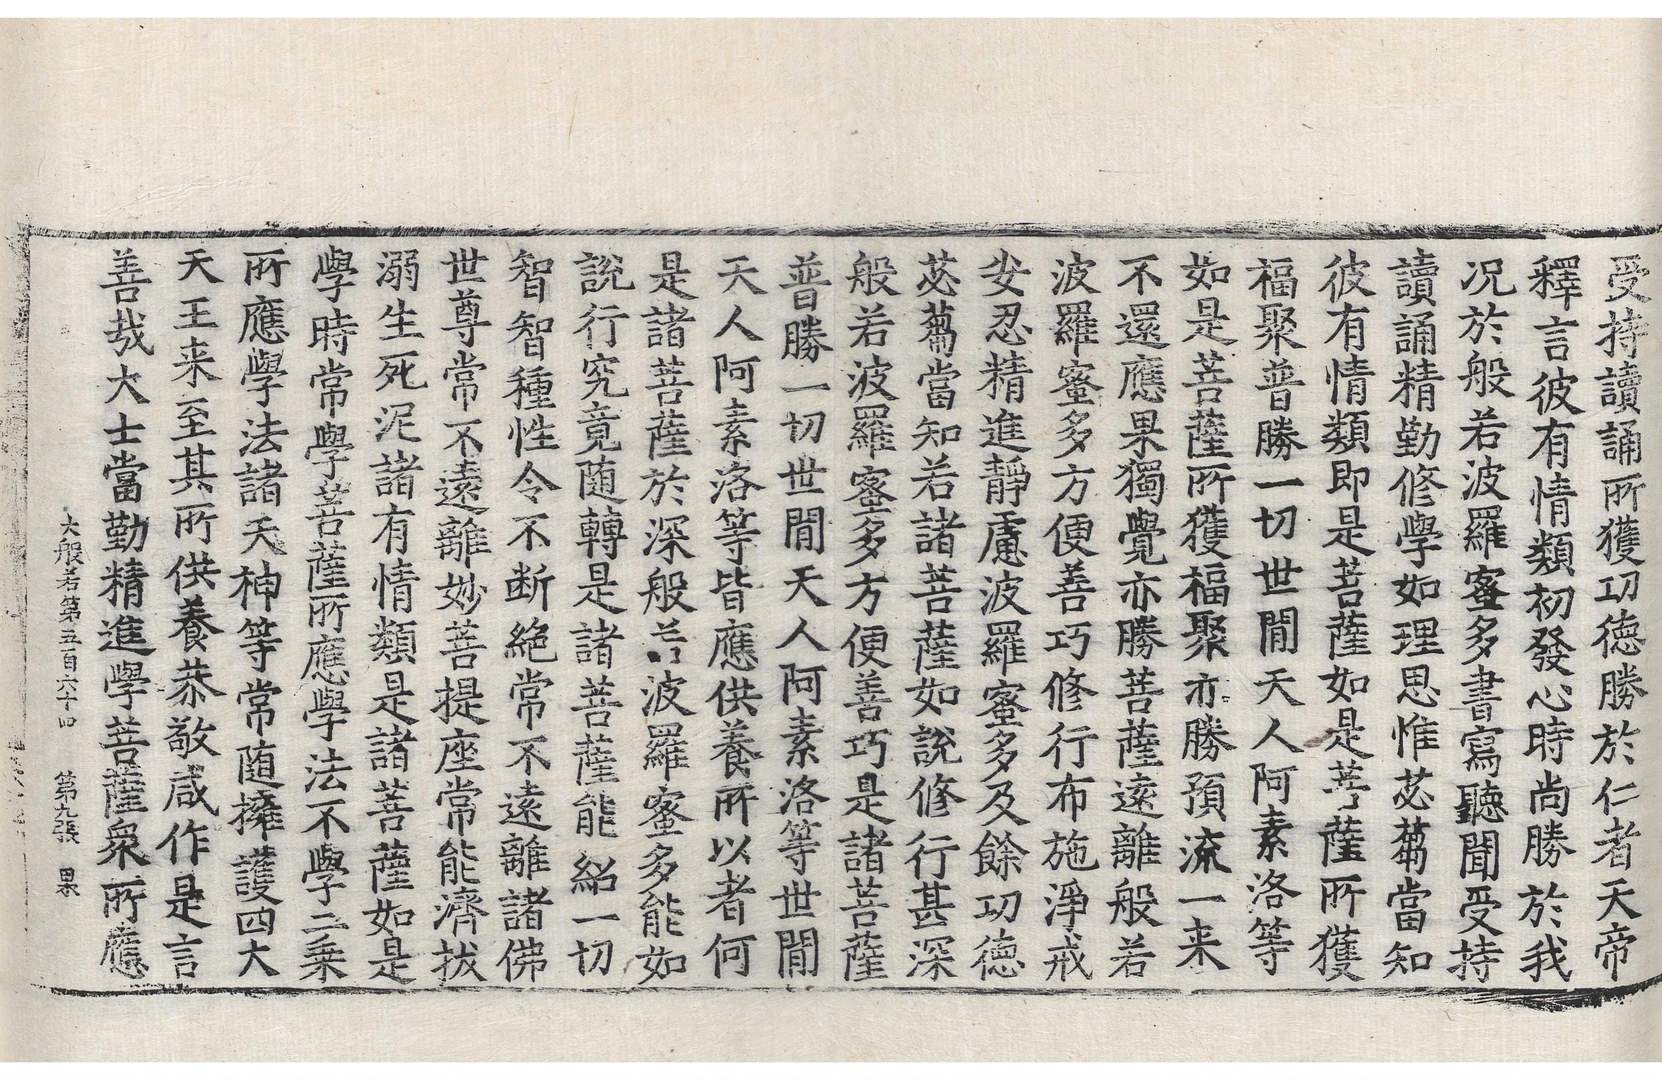 受持讀誦所獲功德勝於仁者天帝
釋言彼有情類初發心時尚勝於我
况於般若波羅蜜多書寫聽聞受持
讀誦精勤修學如理思惟苾蒭當知
彼有情類即是菩薩如是菩薩所獲
福聚普勝一切世間天人阿素洛等
如是菩薩所獲福聚亦勝預流一来
不還應果獨覺亦勝菩薩遠離般若
波羅蜜多方便善巧修行布施淨戒
安忍精進靜慮波羅蜜多及餘功德
苾蒭當知若諸菩薩如說修行甚深
般若波羅蜜多方便善巧是諸菩薩
普勝一切世間天人阿素洛等世間
天人阿素洛等皆應供養所以者何
是諸菩薩於深般若波羅蜜多能如
說行究竟随轉是諸菩薩能紹一切
智智種性令不断絶常不遠離諸佛
世尊常不遠離妙菩提座常能濟拔
溺生死泥諸有情類是諸菩薩如是
學時常學菩薩所應學法不學二乗
所應學法諸天神等常随擁護四大
天王来至其所供養恭敬咸作是言
善哉大士當勤精進學菩薩衆所應
大般若第五百六十四 第九張 果